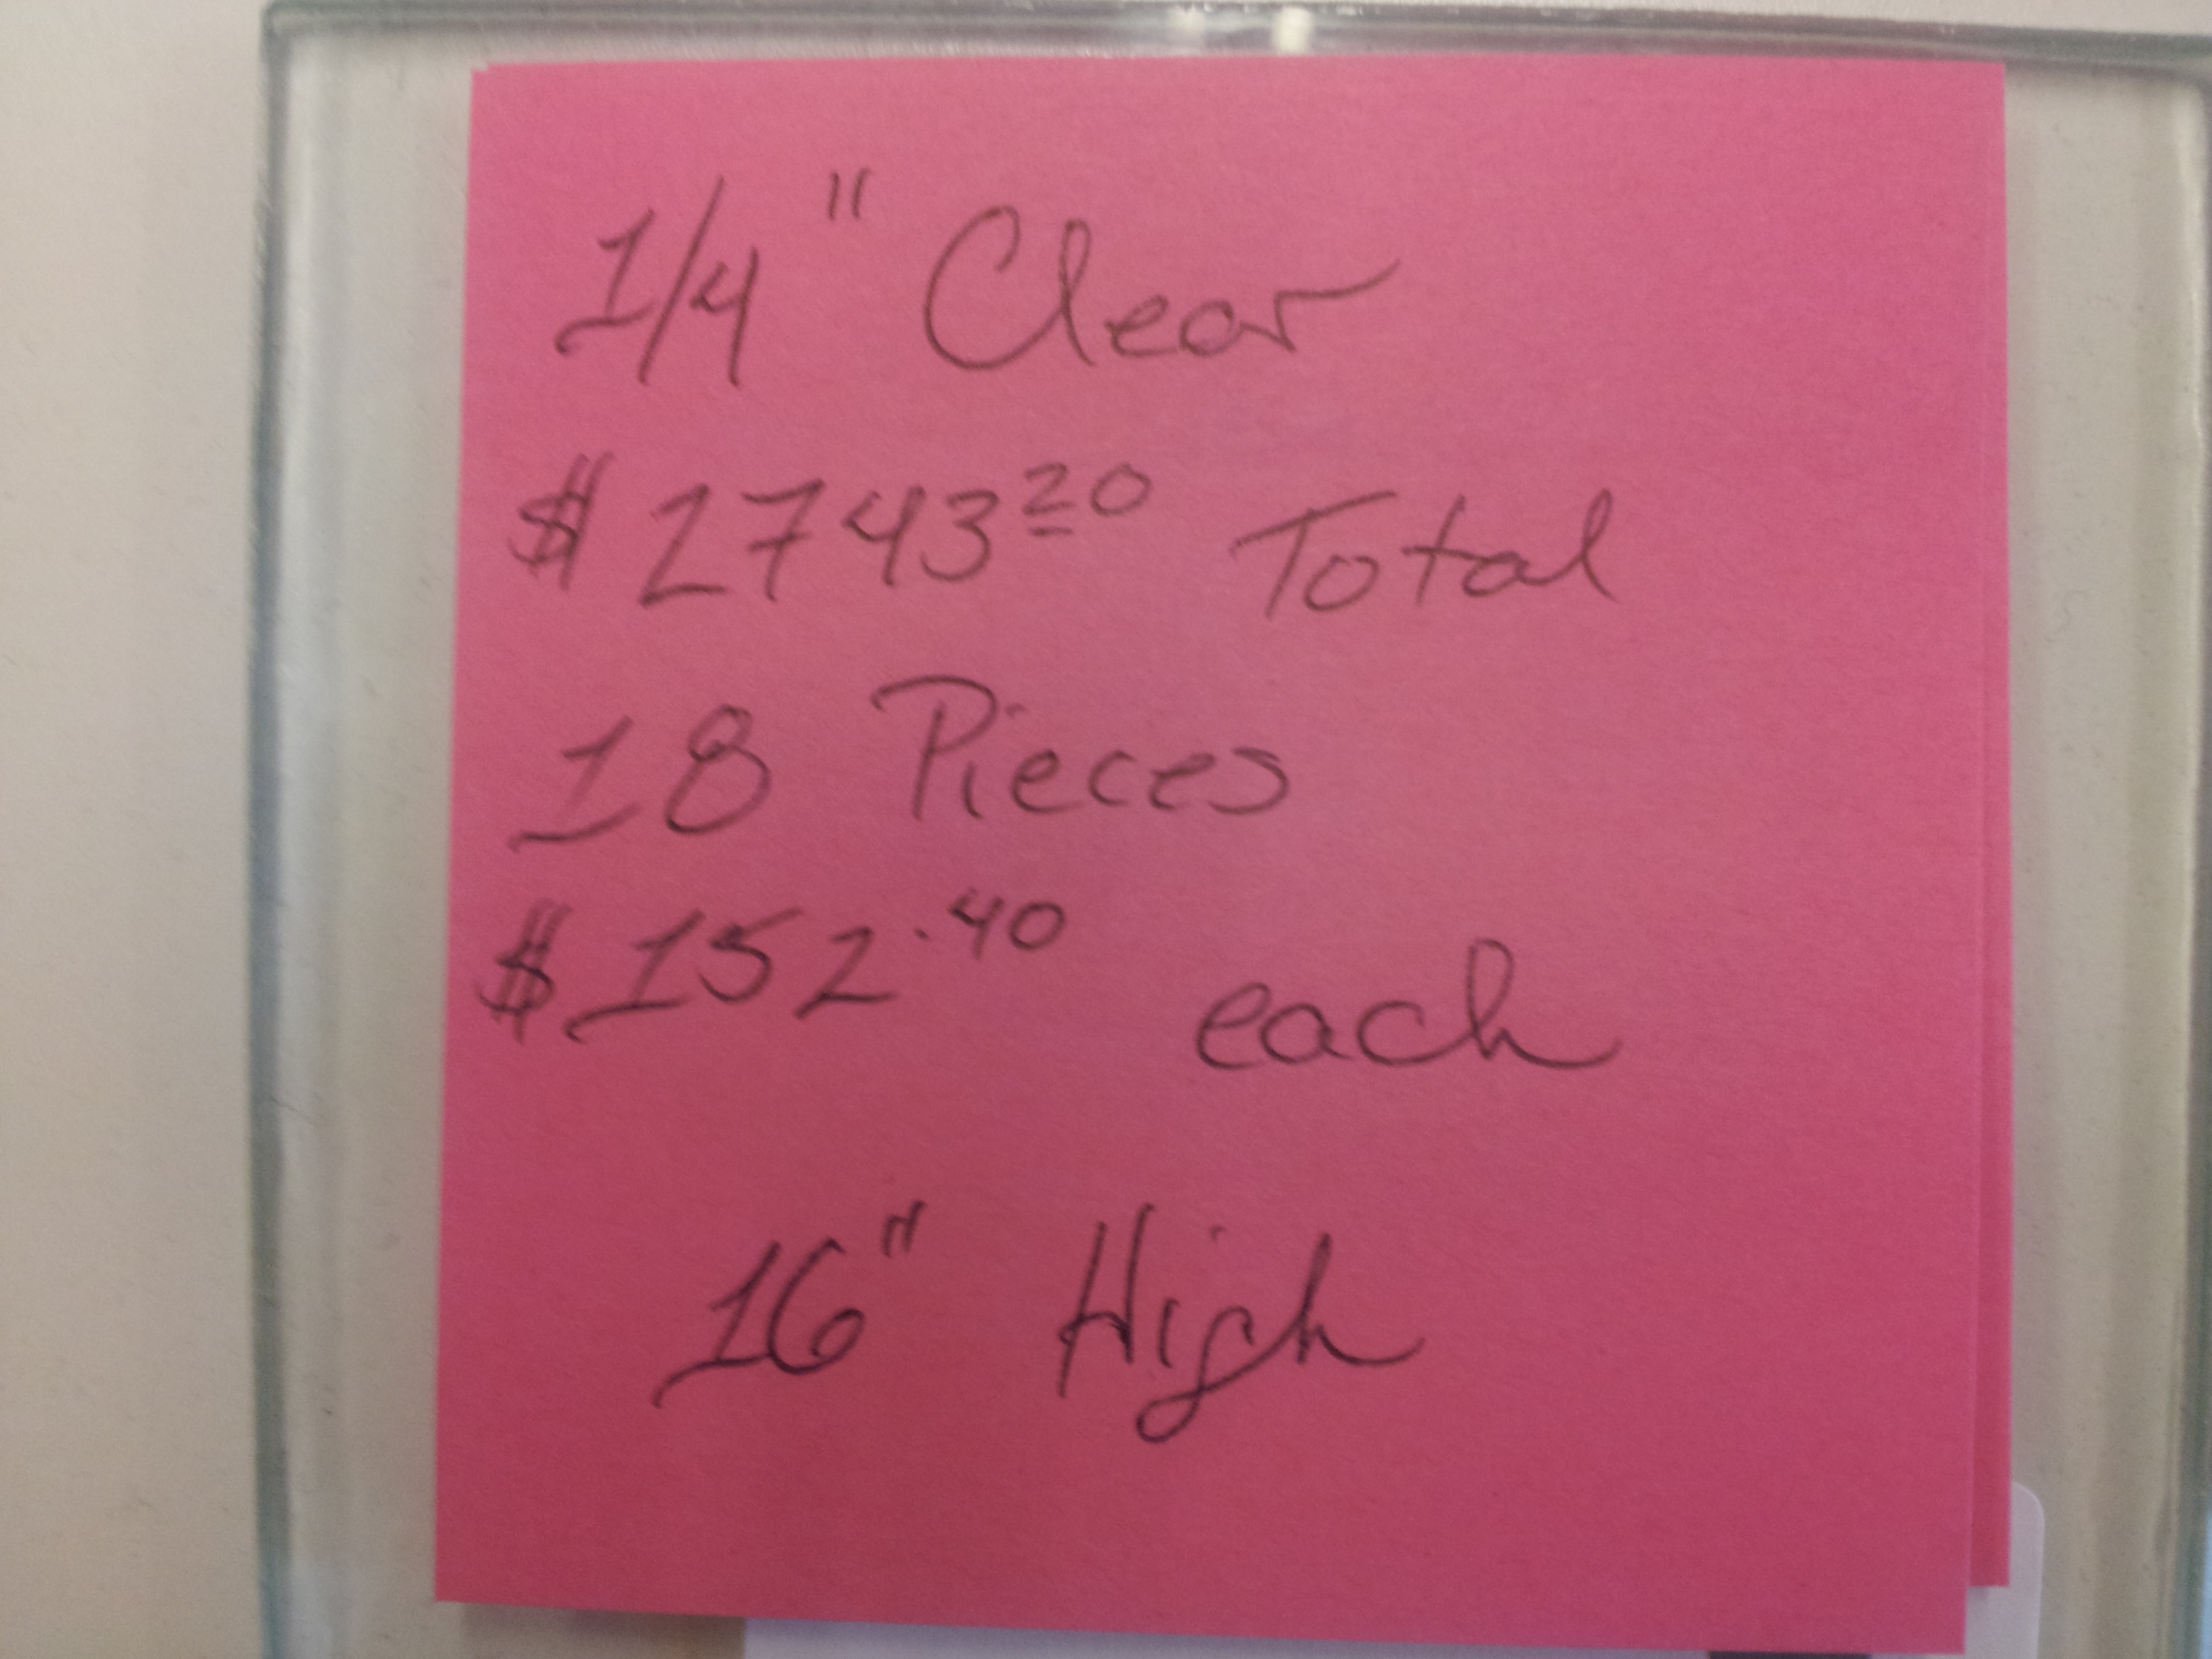 1/4" Clear
$2743 20 Total
18 Pieces
$152.40 each
16" High